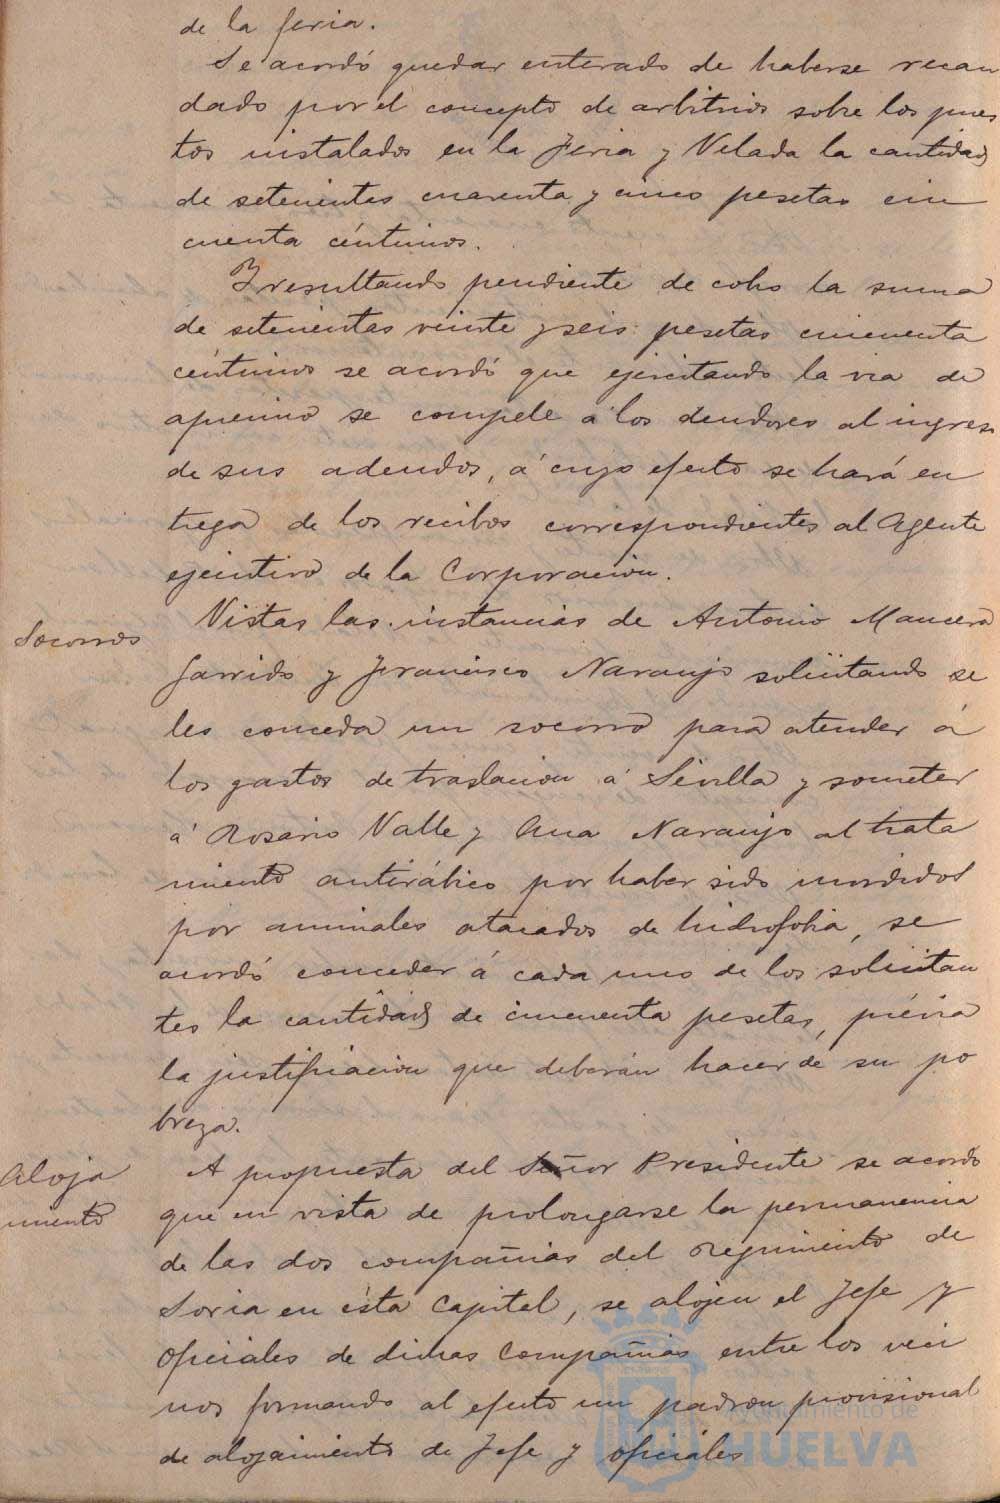 de la feria.
Se acordó quedar enterado de haberse recau
dado por el concepto de arbitrios sobre los pues
tos instalados en la Feria y Velada la cantidad
de setecientas cuarenta y cinco pesetas cin
cuenta céntimos.
Y resultando pendiente de cobro la suma
de setecientas veinte y seis pesetas cincuenta
céntimos se acordó que ejercitando la via de
apremio se compele á los deudores al ingreso
de sus adeudos, á cuyo efecto se hará en
trega de los recibos correspondientes al Agente
ejecutivo de la Corporacion.
Socorros
Vistas las instancias de Antonio Mancera
Garrido y Francisco Naranjo solicitando se
les conceda un socorro para atender á
los gastos de traslacion á Sevilla y someter
á Rosario Valle y Ana Naranjo al trata
miento antirábico por haber sido mordidos
por animales atacados de hidrofobia, se
acordó conceder á cada uno de los solicitan
tes la cantidad de cincuenta pesetas, prévia
la justificacion que deberán hacer de su po
breza.
Aloja
miento
A propuesta del Señor Presidente se acordó
que en vista de prolongarse la permanencia
de las dos compañias del regimiento de
Soria en ésta Capital, se alojen el Jefe y
oficiales de dichas Compañias entre los veci
nos formando al efecto un padron provisional
de alojamiento de Jefe y oficiales
Ayuntamiento de
HUELVA